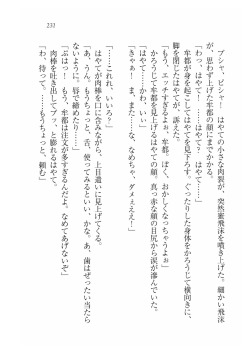 231
プシャ、ピシャ！　はやての小さな肉裂が、突然蜜飛沫を噴き上げた。細かい飛沫
が、思わず上げた牟都の顔にまでかかる。
「わっ、はやて……はやて？」
牟都が身を起こしてはやてを見下ろす。ぐったりした身体をかろうじて横向きに、
脚を閉じたはやてが、訴えた。
「もう、エッチすぎるよぉ、牟都。ぼく、おかしくなっちゃうよぉ」
かろうじて牟都を見上げるはやての顔、真っ赤な顔の目尻から涙が滲んでいた。
「はやて……かわ、いぃ」
「きゃぁ！　ま、また……な、なめちゃ、ダメぇええ！」
「……これ、いいろ？」
はやてが肉棒を口に含みながら、上目遣いに見上げてくる。
「あ、うん。もうちょっと、舌、使ってみるといい、かな。あ、歯はぜったい当たら
ないように。唇で締めたり……」
「ぷはっ！　もう、牟都は注文が多すぎるんだよ。なめてあげないぞ」
肉棒を吐き出してプッ、と膨れるはやて。
「わ、待って。……もうちょっと、頼む」